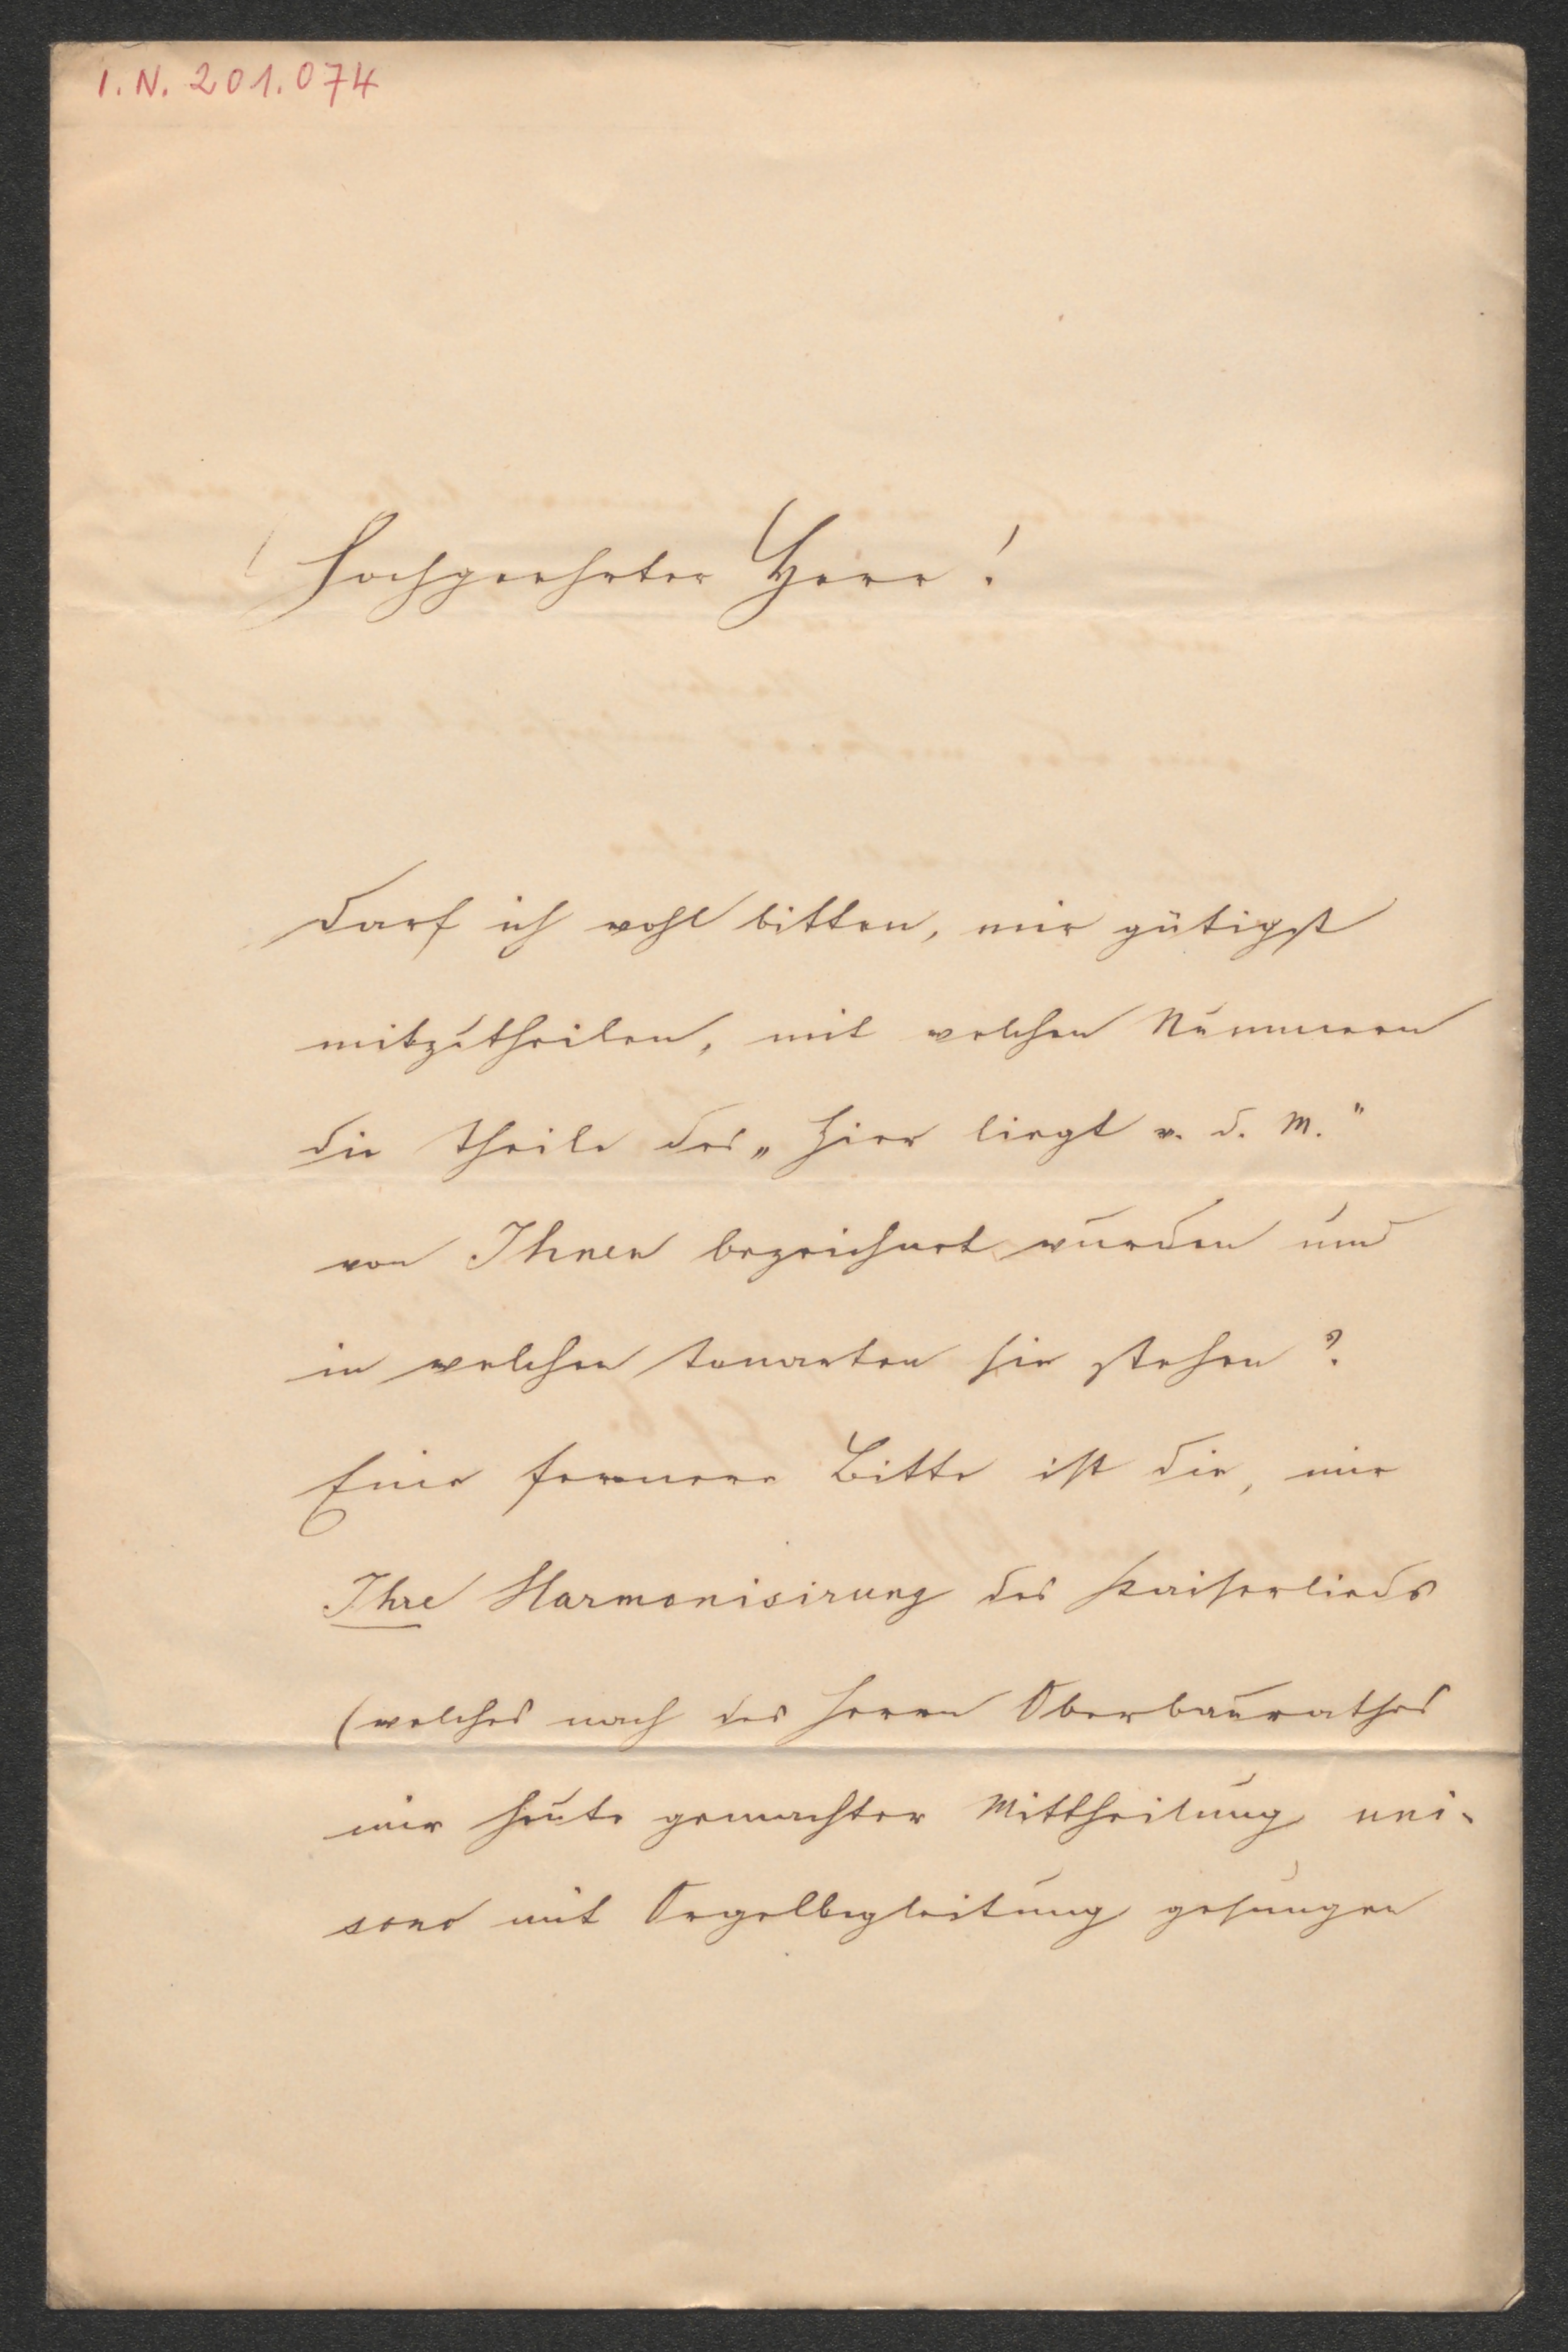 I.N. 201.074
Hochgeehrter Herr!
Darf ich wohl bitten, mir gütigst
mitzutheilen, mit welchen Nummern
die Theile des „Hier liegt v. d. M.“
von Ihnen bezeichnet wurden und
in welchen Tonarten sie stehen?
Eine fernere Bitte ist die, mir
Ihre Harmonisirung des Kaiserlieds
(welches nach des Herrn Oberbaurathes
mir heute gemachter Mittheilung uni-
sono mit Orgelbegleitung gesungen